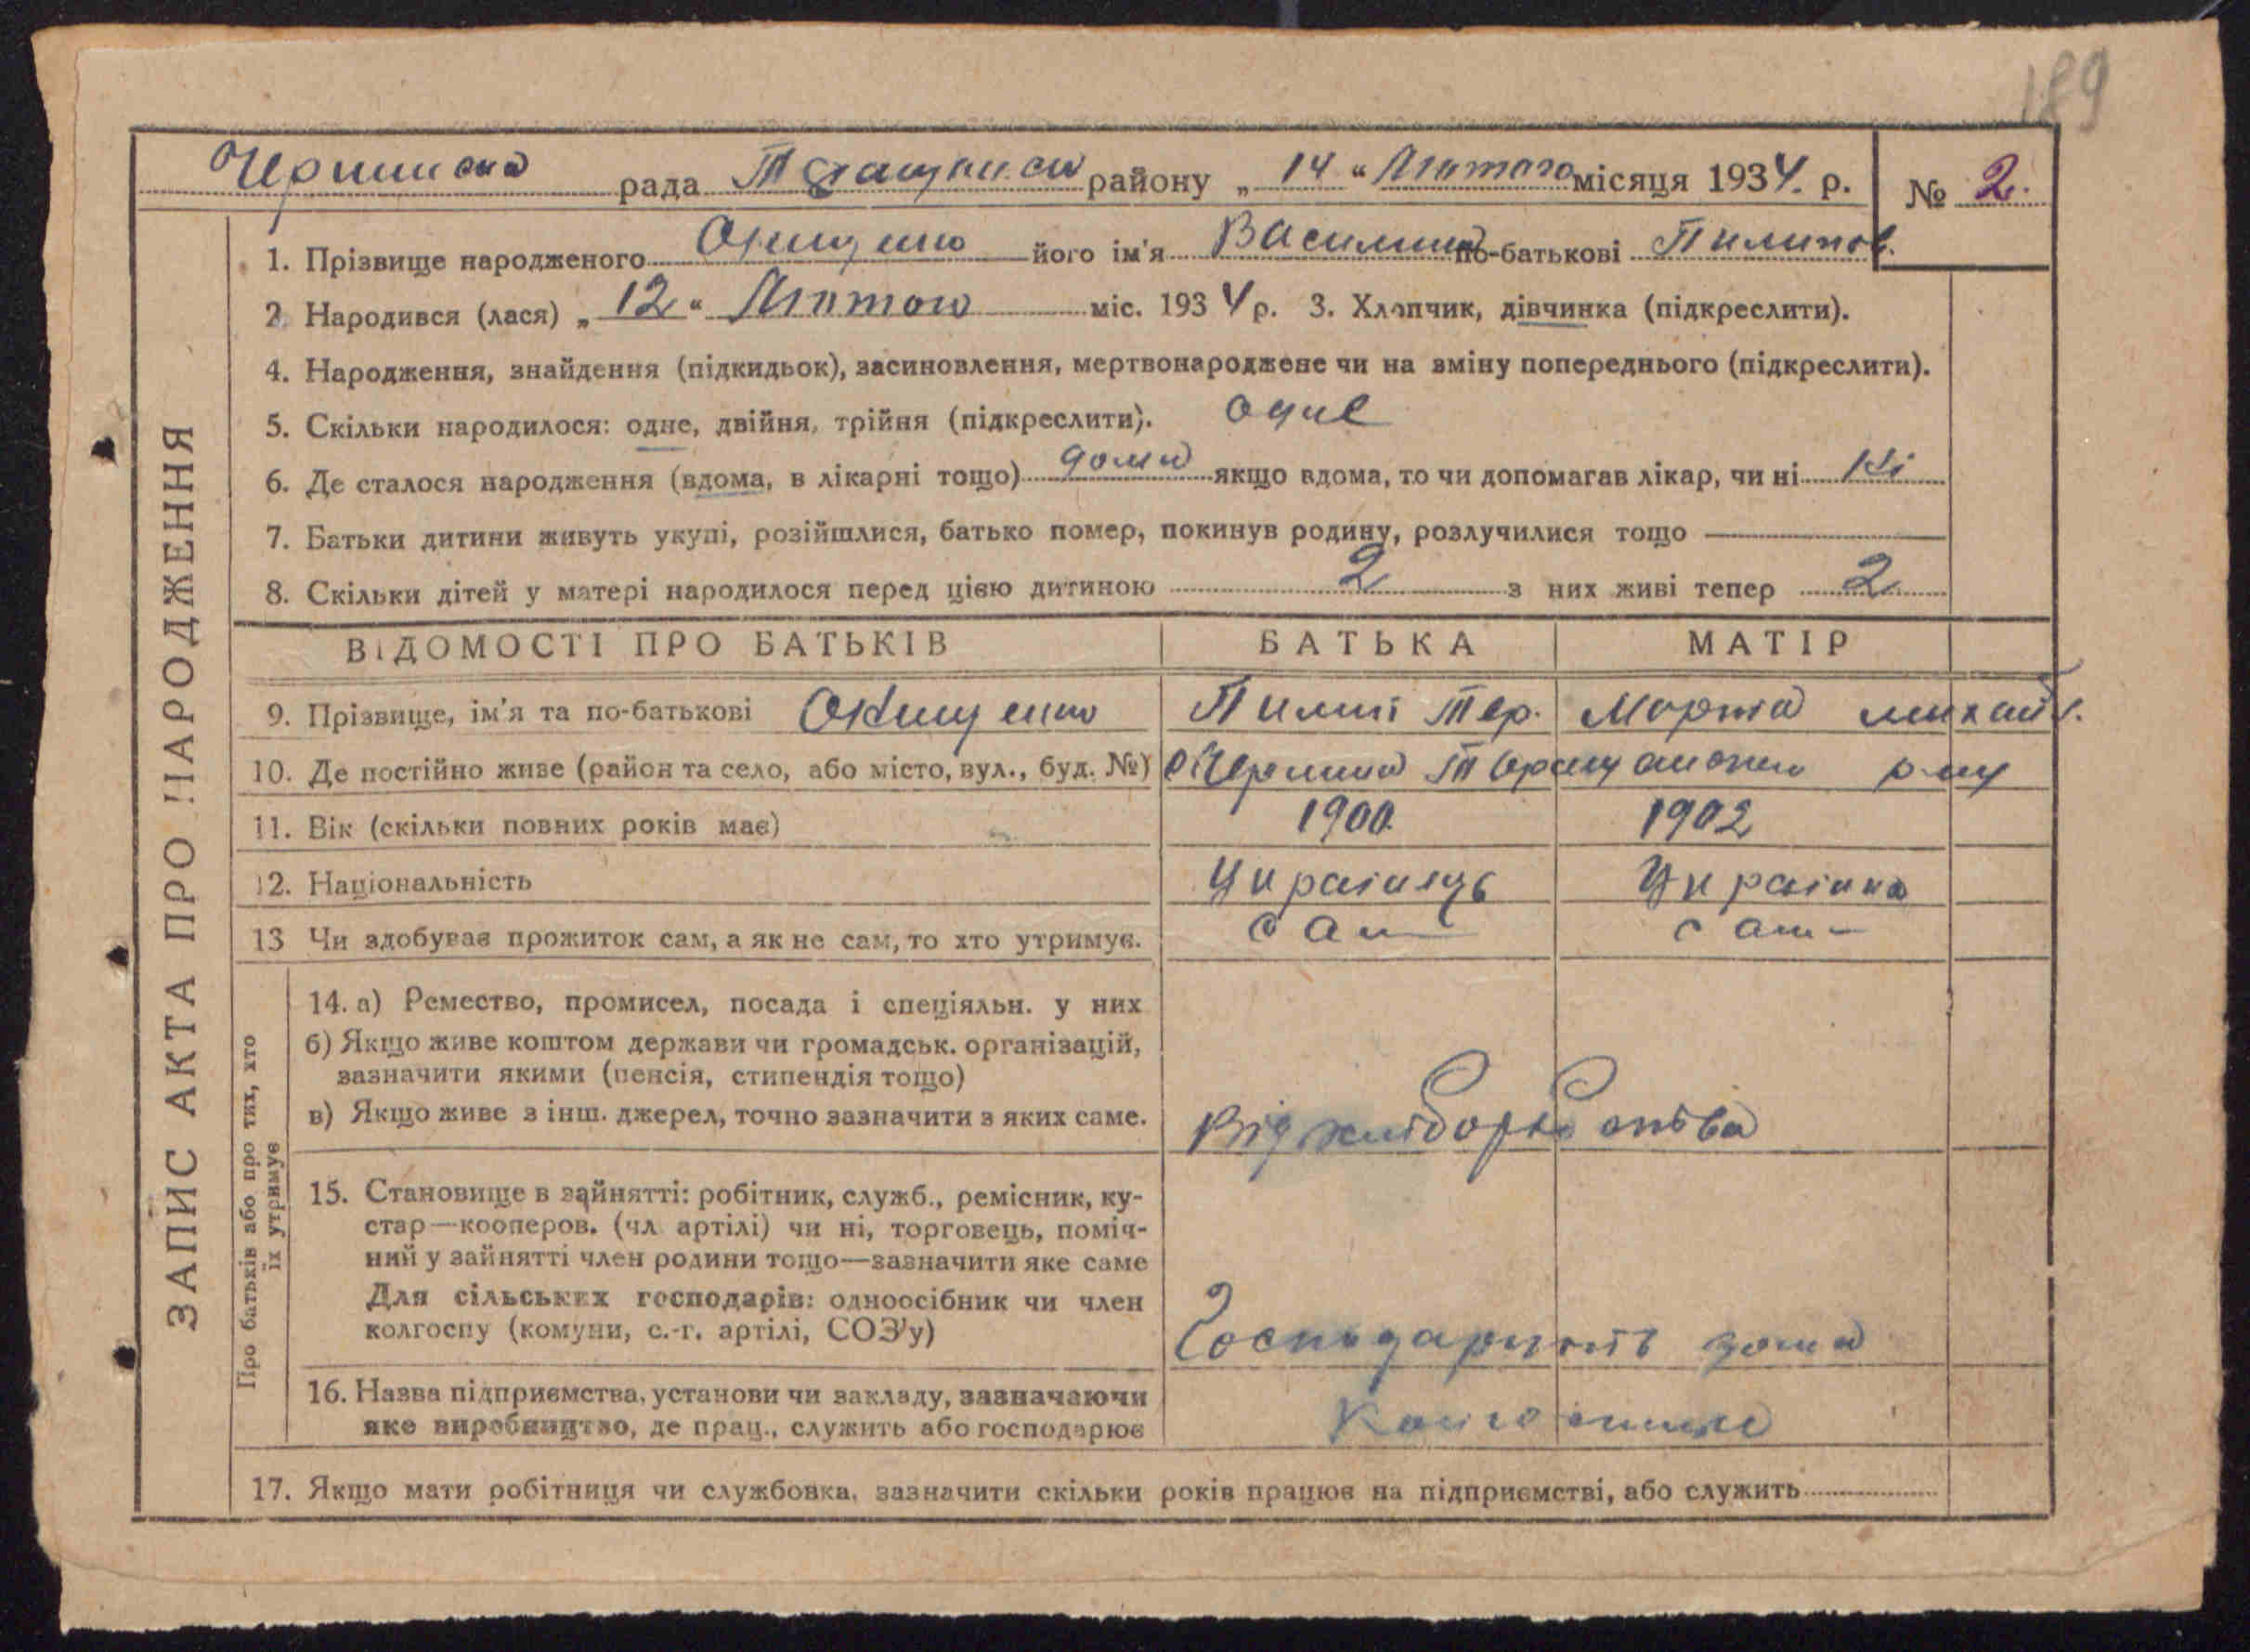 189
рада району „ 14 “ Лютого місяця 1934. р. № 2.
1. Прізвище народженого його ім'я Василина по-батькові Пилипов.
2. Народився (лася) „ 12 “ Лютого міс. 1934 р. 3. Хлопчик, дівчинка (підкреслити).
4. Народження, знайдення (підкидьок), засиновлення, мертвонароджене чи на зміну попереднього (підкреслити).
5. Скільки народилося: одне, двійня, трійня (підкреслити). одне
6. Де сталося народження (вдома, в лікарні тощо) дома якщо вдома, то чи допомагав лікар, чи ні ні
7. Батьки дитини живуть укупі, розійшлися, батько помер, покинув родину, розлучилися тощо
8. Скільки дітей у матері народилося перед цією дитиною 2 з них живі тепер 2
ЗАПИС АКТА ПРО НАРОДЖЕННЯ
ВІДОМОСТІ ПРО БАТЬКІВ БАТЬКА МАТІР
9. Прізвище, ім'я та по-батькові Пилип Тер. Марта михайл.
10. Де постійно живе (район та село, або місто, вул., буд. №)
11. Вік (скільки повних років має) 1900 1902
12. Національність Українець Українка
13 Чи здобуває прожиток сам, а як не сам, то хто утримує. сам сам
Про батьків або про тих, хто
їх утримує
14. а) Ремество, промисел, посада і спеціяльн. у них
б) Якщо живе коштом держави чи громадськ. організацій,
зазначити якими (пенсія, стипендія тощо)
в) Якщо живе з інш. джерел, точно зазначити з яких саме.
Від хліборобства
15. Становище в зайнятті: робітник, служб., ремісник, ку-
стар—кооперов. (чл. артілі) чи ні, торговець, поміч-
ний у зайнятті член родини тощо—зазначити яке саме
Для сільських господарів: одноосібник чи член
колгоспу (комуни, с.-г. артілі, СОЗ'у)
Господарюють дома
16. Назва підприємства, установи чи закладу, зазначаючи
яке виробництво, де прац., служить або господарює
17. Якщо мати робітниця чи службовка, зазначити скільки років працює на підприємстві, або служить